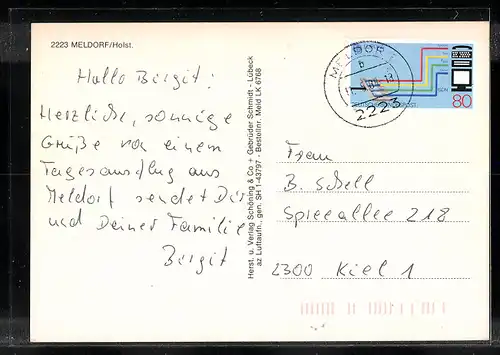 2223 MELDORF/Holst.
Hallo Birgit!
Herzliche, sonnige
Grüße von einem
Tagesausflug aus
Meldorf sendet Dir
und Deiner Familie
Birgit
Herst. u. Verlag Schöning & Co + Gebrüder Schmidt - Lübeck
az Luftaufn., gen. SH 1-43797 - Bestellnr. Meld LK 6768
MELDORF 1
b
2223
80
Frau
B. Schell
Spreeallee 218
2300 Kiel 1